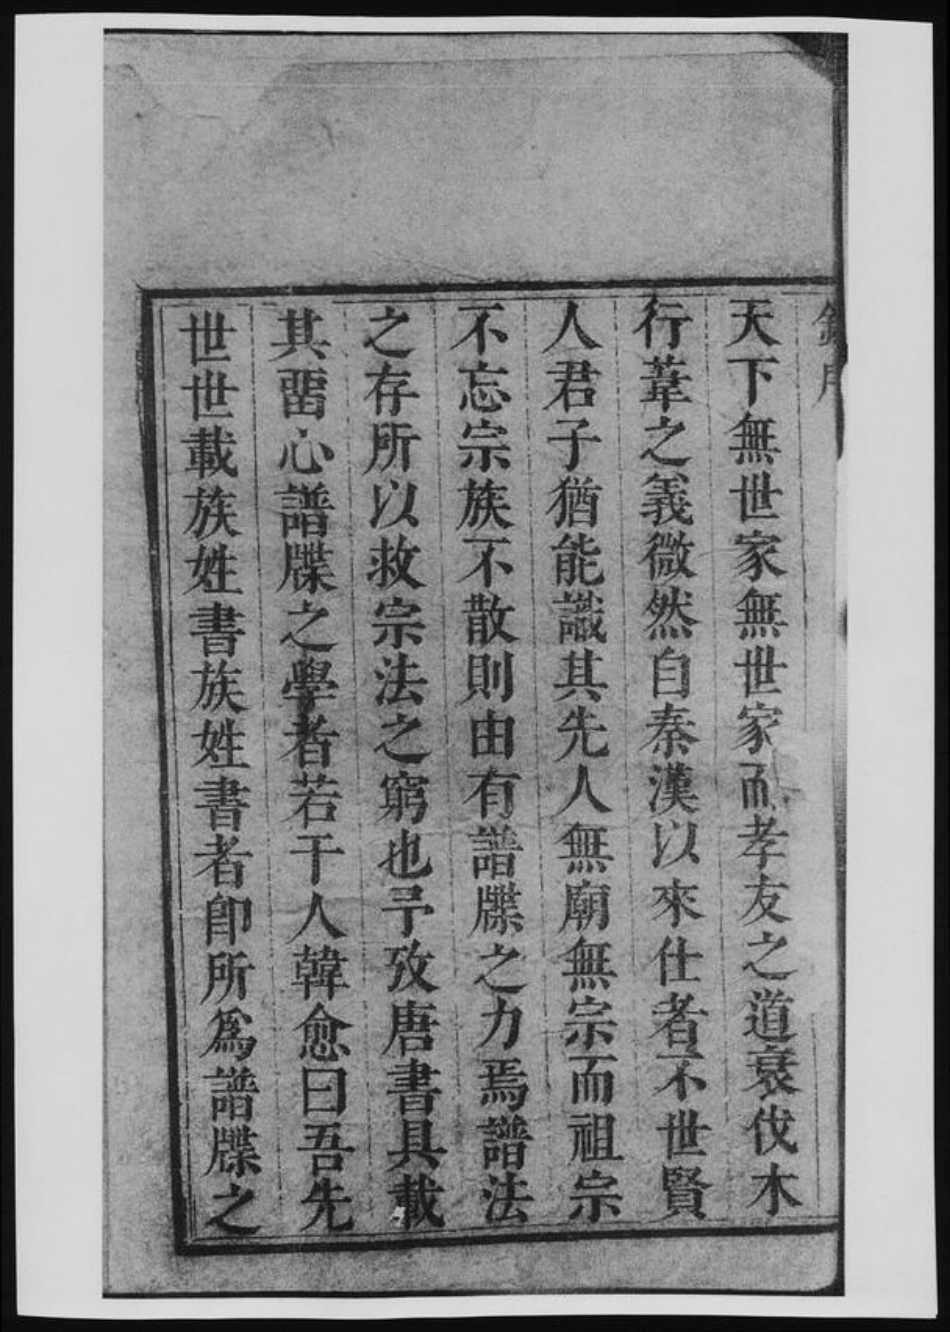 序
天下無世家無世家而孝友之道衰伐木
行葦之義微然自秦漢以來仕者不世賢
人君子猶能識其先人無廟無宗而祖宗
不忘宗族不散則由有譜牒之力焉譜法
之存所以救宗法之窮也予攷唐書具載
其畱心譜牒之學者若干人韓愈曰吾先
世世載族姓書族姓書者卽所爲譜牒之